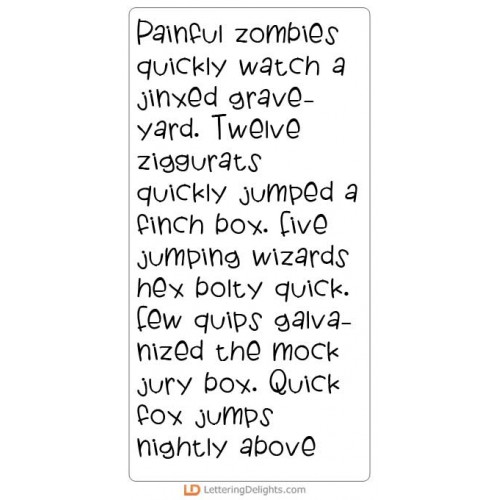 Painful zombies
quickly watch a
jinxed grave-
yard. Twelve
ziggurats
quickly jumped a
finch box. five
jumping wizards
hex bolty quick.
few quips galva-
nized the mock
jury box. Quick
fox jumps
nightly above
LD LetteringDelights.com